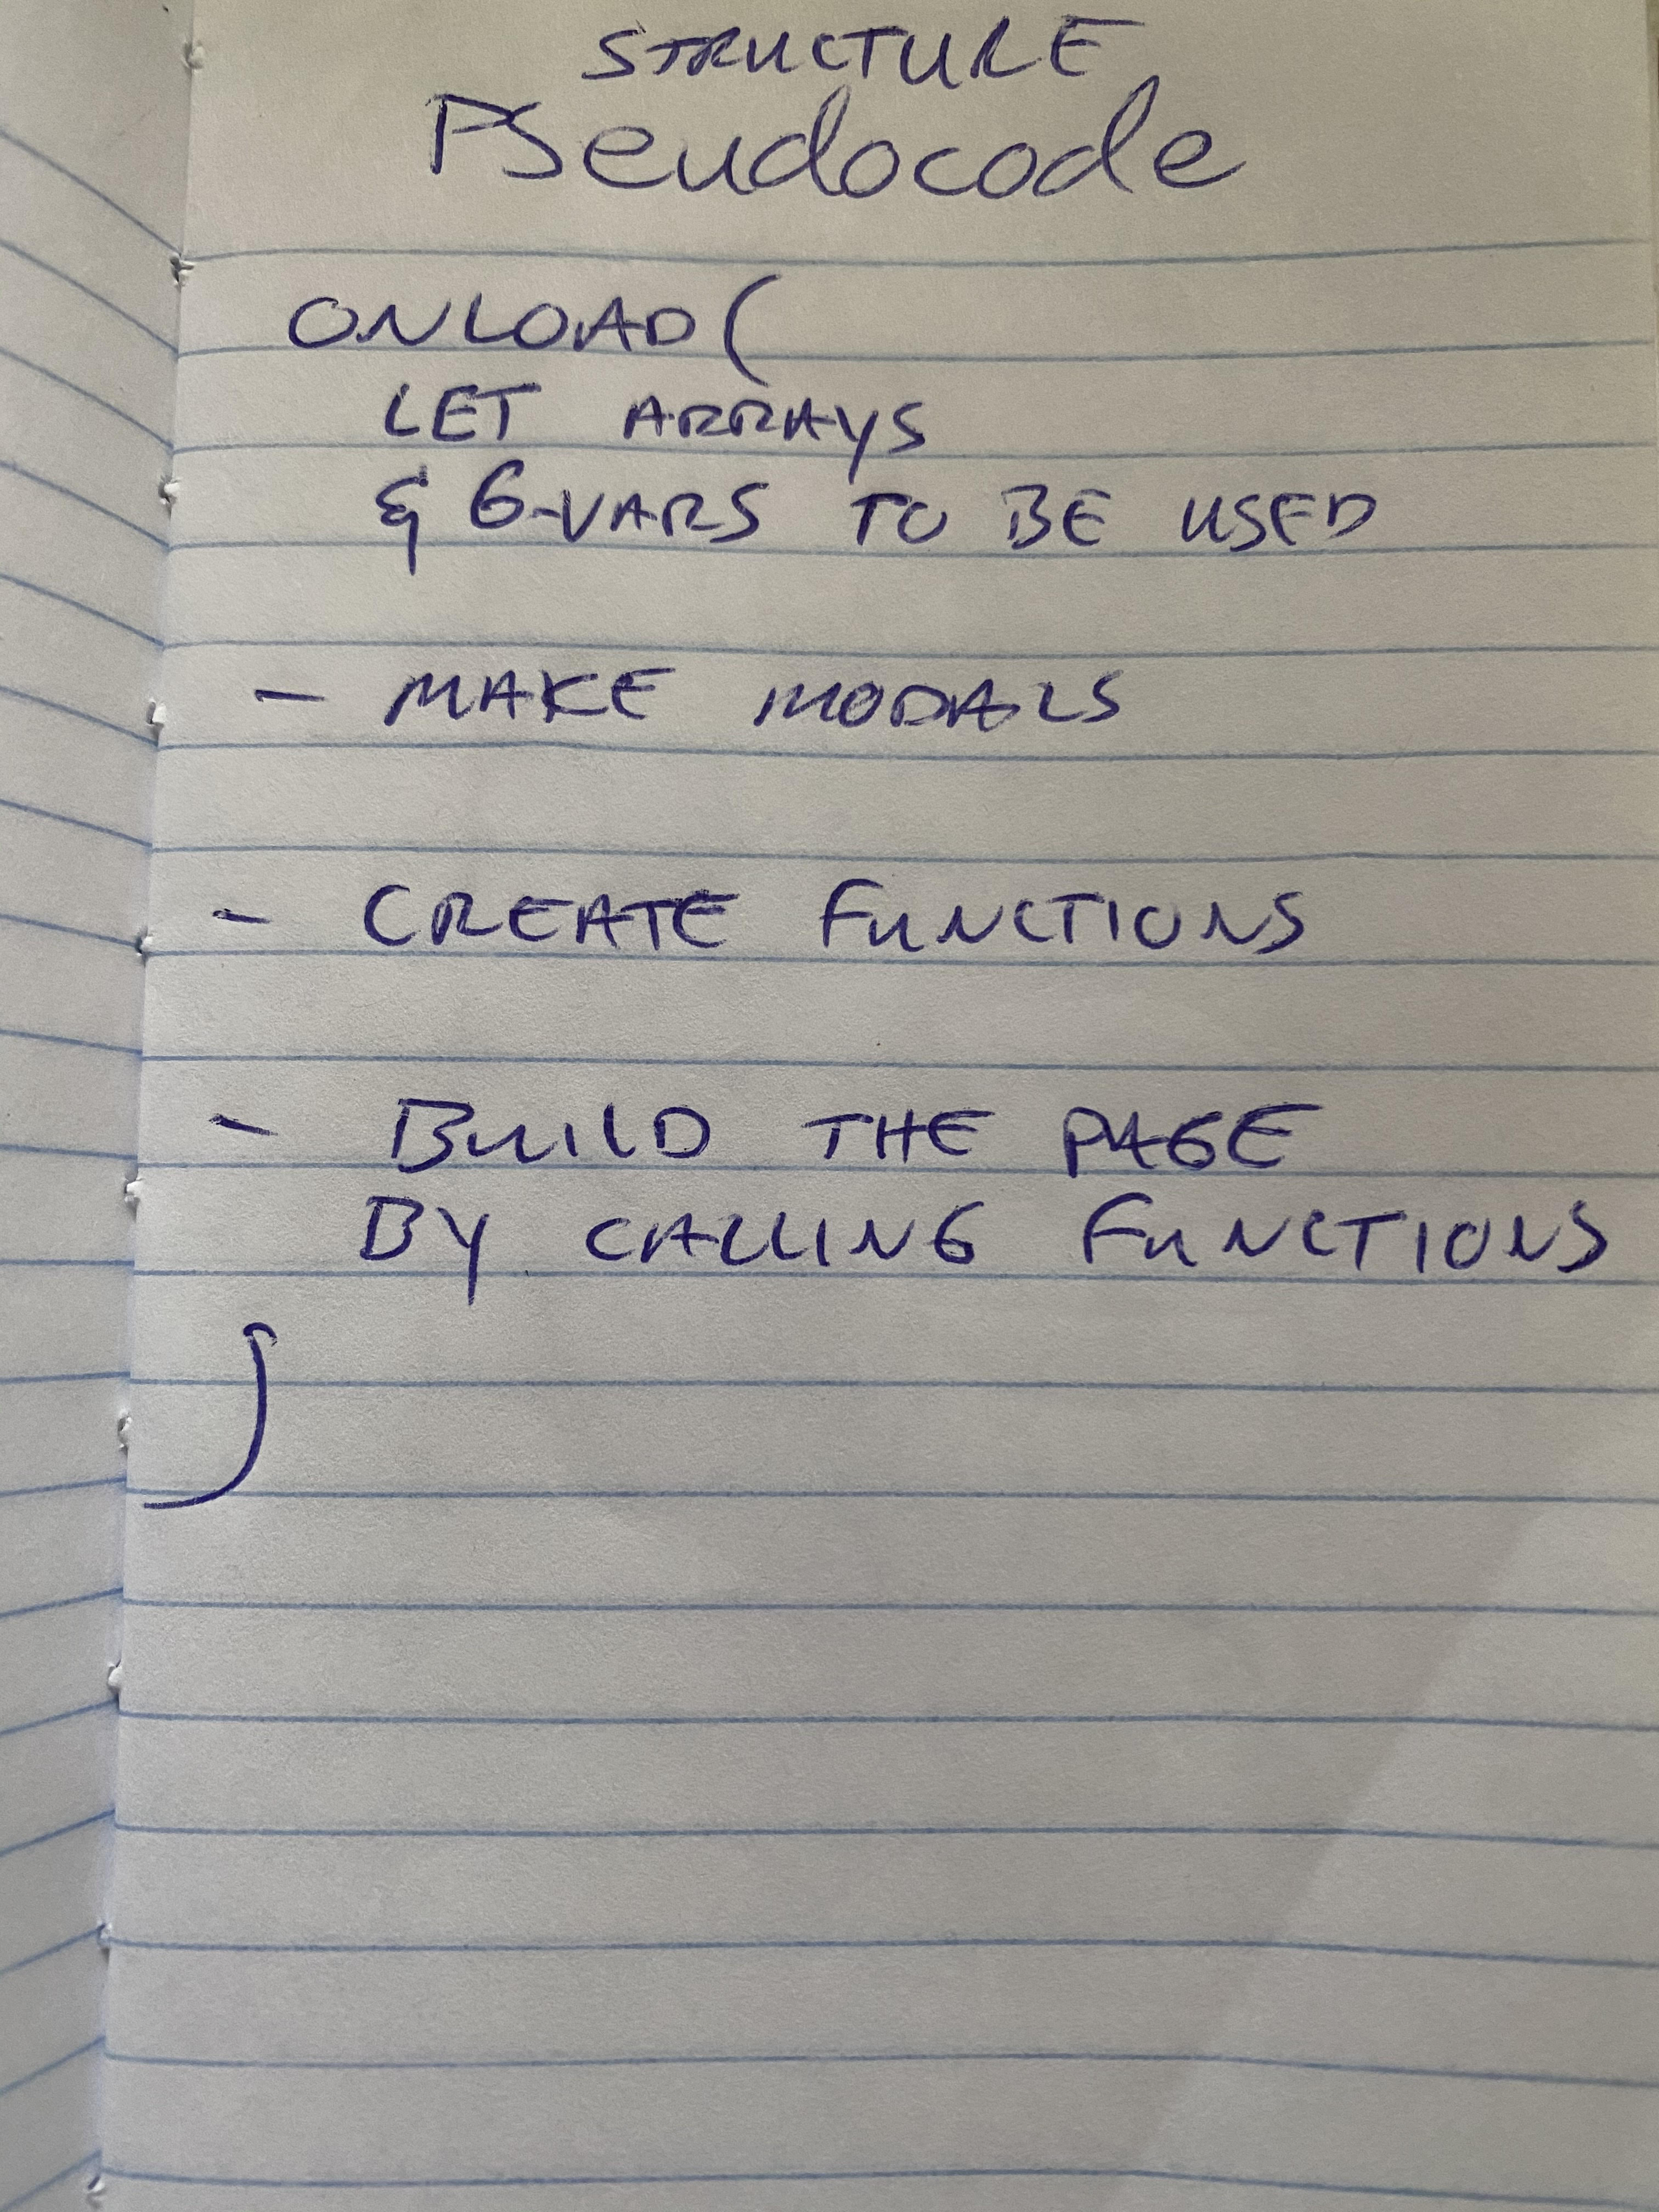 STRUCTURE
Pseudocode
ONLOAD (
LET ARRAYS
& G-VARS TO BE USED
- MAKE MODALS
- CREATE FUNCTIONS
- BUILD THE PAGE
BY CALLING FUNCTIONS
)